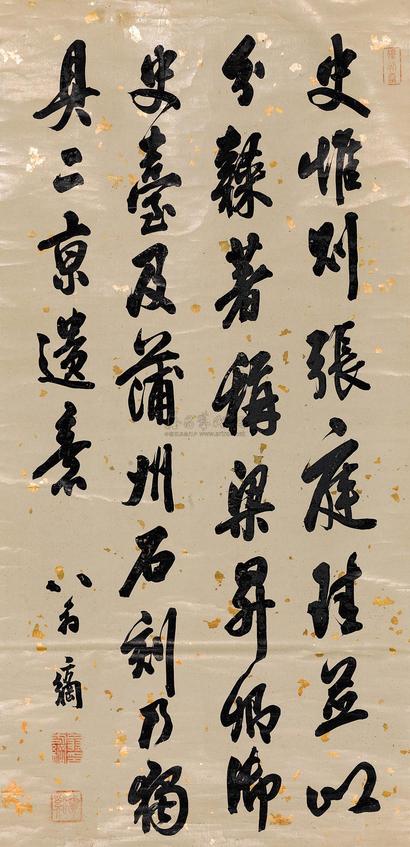 史惟則張庭珪並以
分隸著稱梁昇卿御
史臺及蒲州石刻乃獨
具二京遺意
翁方綱